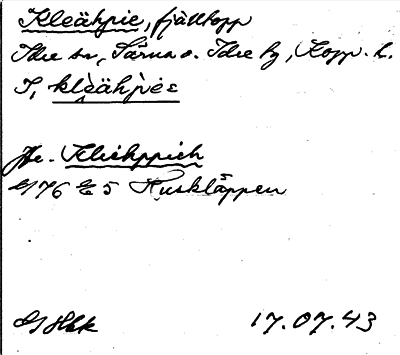 Kleähpie, fjälltopp
Idre sn, Särna o. Idre tg, Kopp. l.
I, klèähpìe
Jfr. Kliehppieh
176 5 Huskläppen
17.07.43